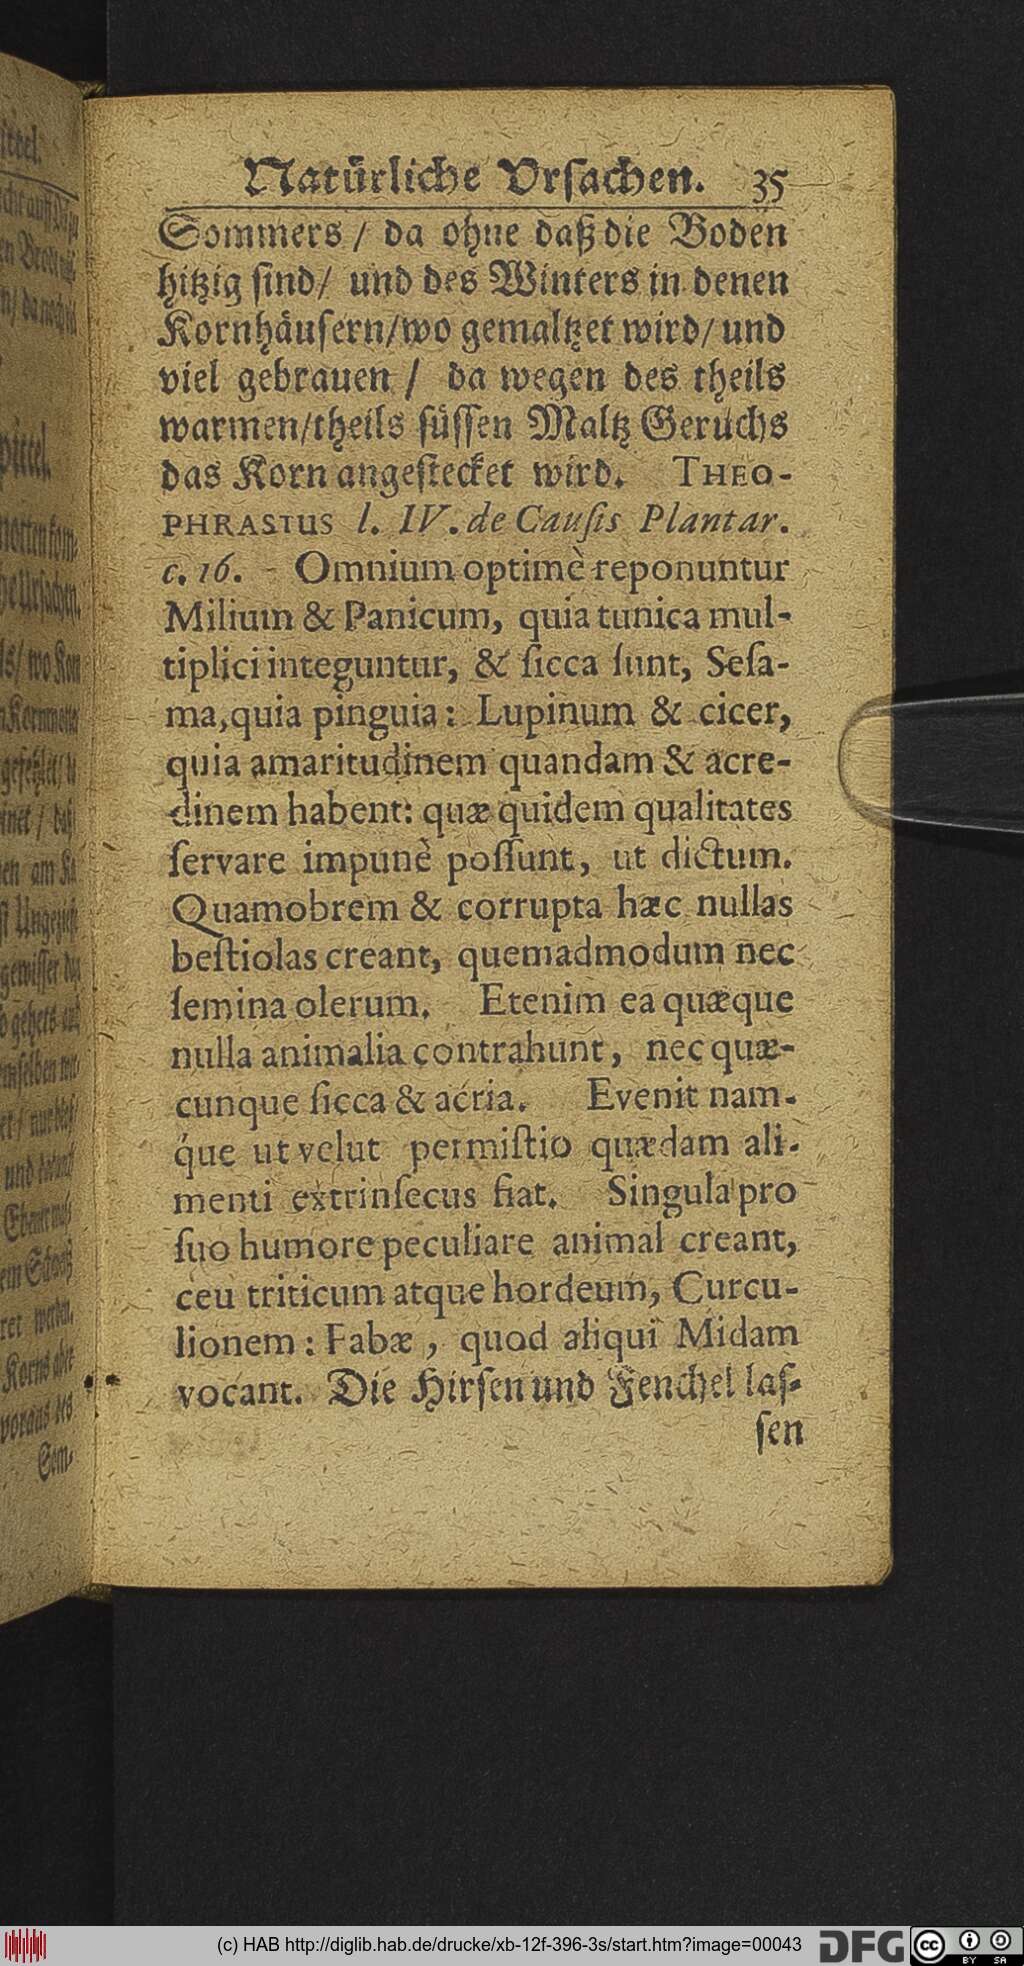 Natürliche Vrſachen. 35
Sommers / da ohne daß die Boden
hitzig ſind / und des Winters in denen
Kornhäuſern / wo gemaltzet wird / und
viel gebrauen / da wegen des theils
warmen / theils ſüſſen Maltz Geruchs
das Korn angeſtecket wird. THEO-
PHRASTUS l. IV. de Cauſis Plantar.
c. 16. Omnium optimè reponuntur
Milium & Panicum, quia tunica mul-
tiplici integuntur, & ſicca ſunt, Seſa-
ma, quia pinguia: Lupinum & cicer,
quia amaritudinem quandam & acre-
dinem habent: quæ quidem qualitates
ſervare impunè poſſunt, ut dictum.
Quamobrem & corrupta hæc nullas
beſtiolas creant, quemadmodum nec
ſemina olerum. Etenim ea quæque
nulla animalia contrahunt, nec quæ-
cunque ſicca & acria. Evenit nam-
que ut velut permiſtio quædam ali-
menti extrinſecus fiat. Singula pro
ſuo humore peculiare animal creant,
ceu triticum atque hordeum, Curcu-
lionem: Fabæ, quod aliqui Midam
vocant. Die Hirſen und Fenchel laſ-
ſen
(c) HAB http://diglib.hab.de/drucke/xb-12f-396-3s/start.htm?image=00043
DFG
cc
BY SA